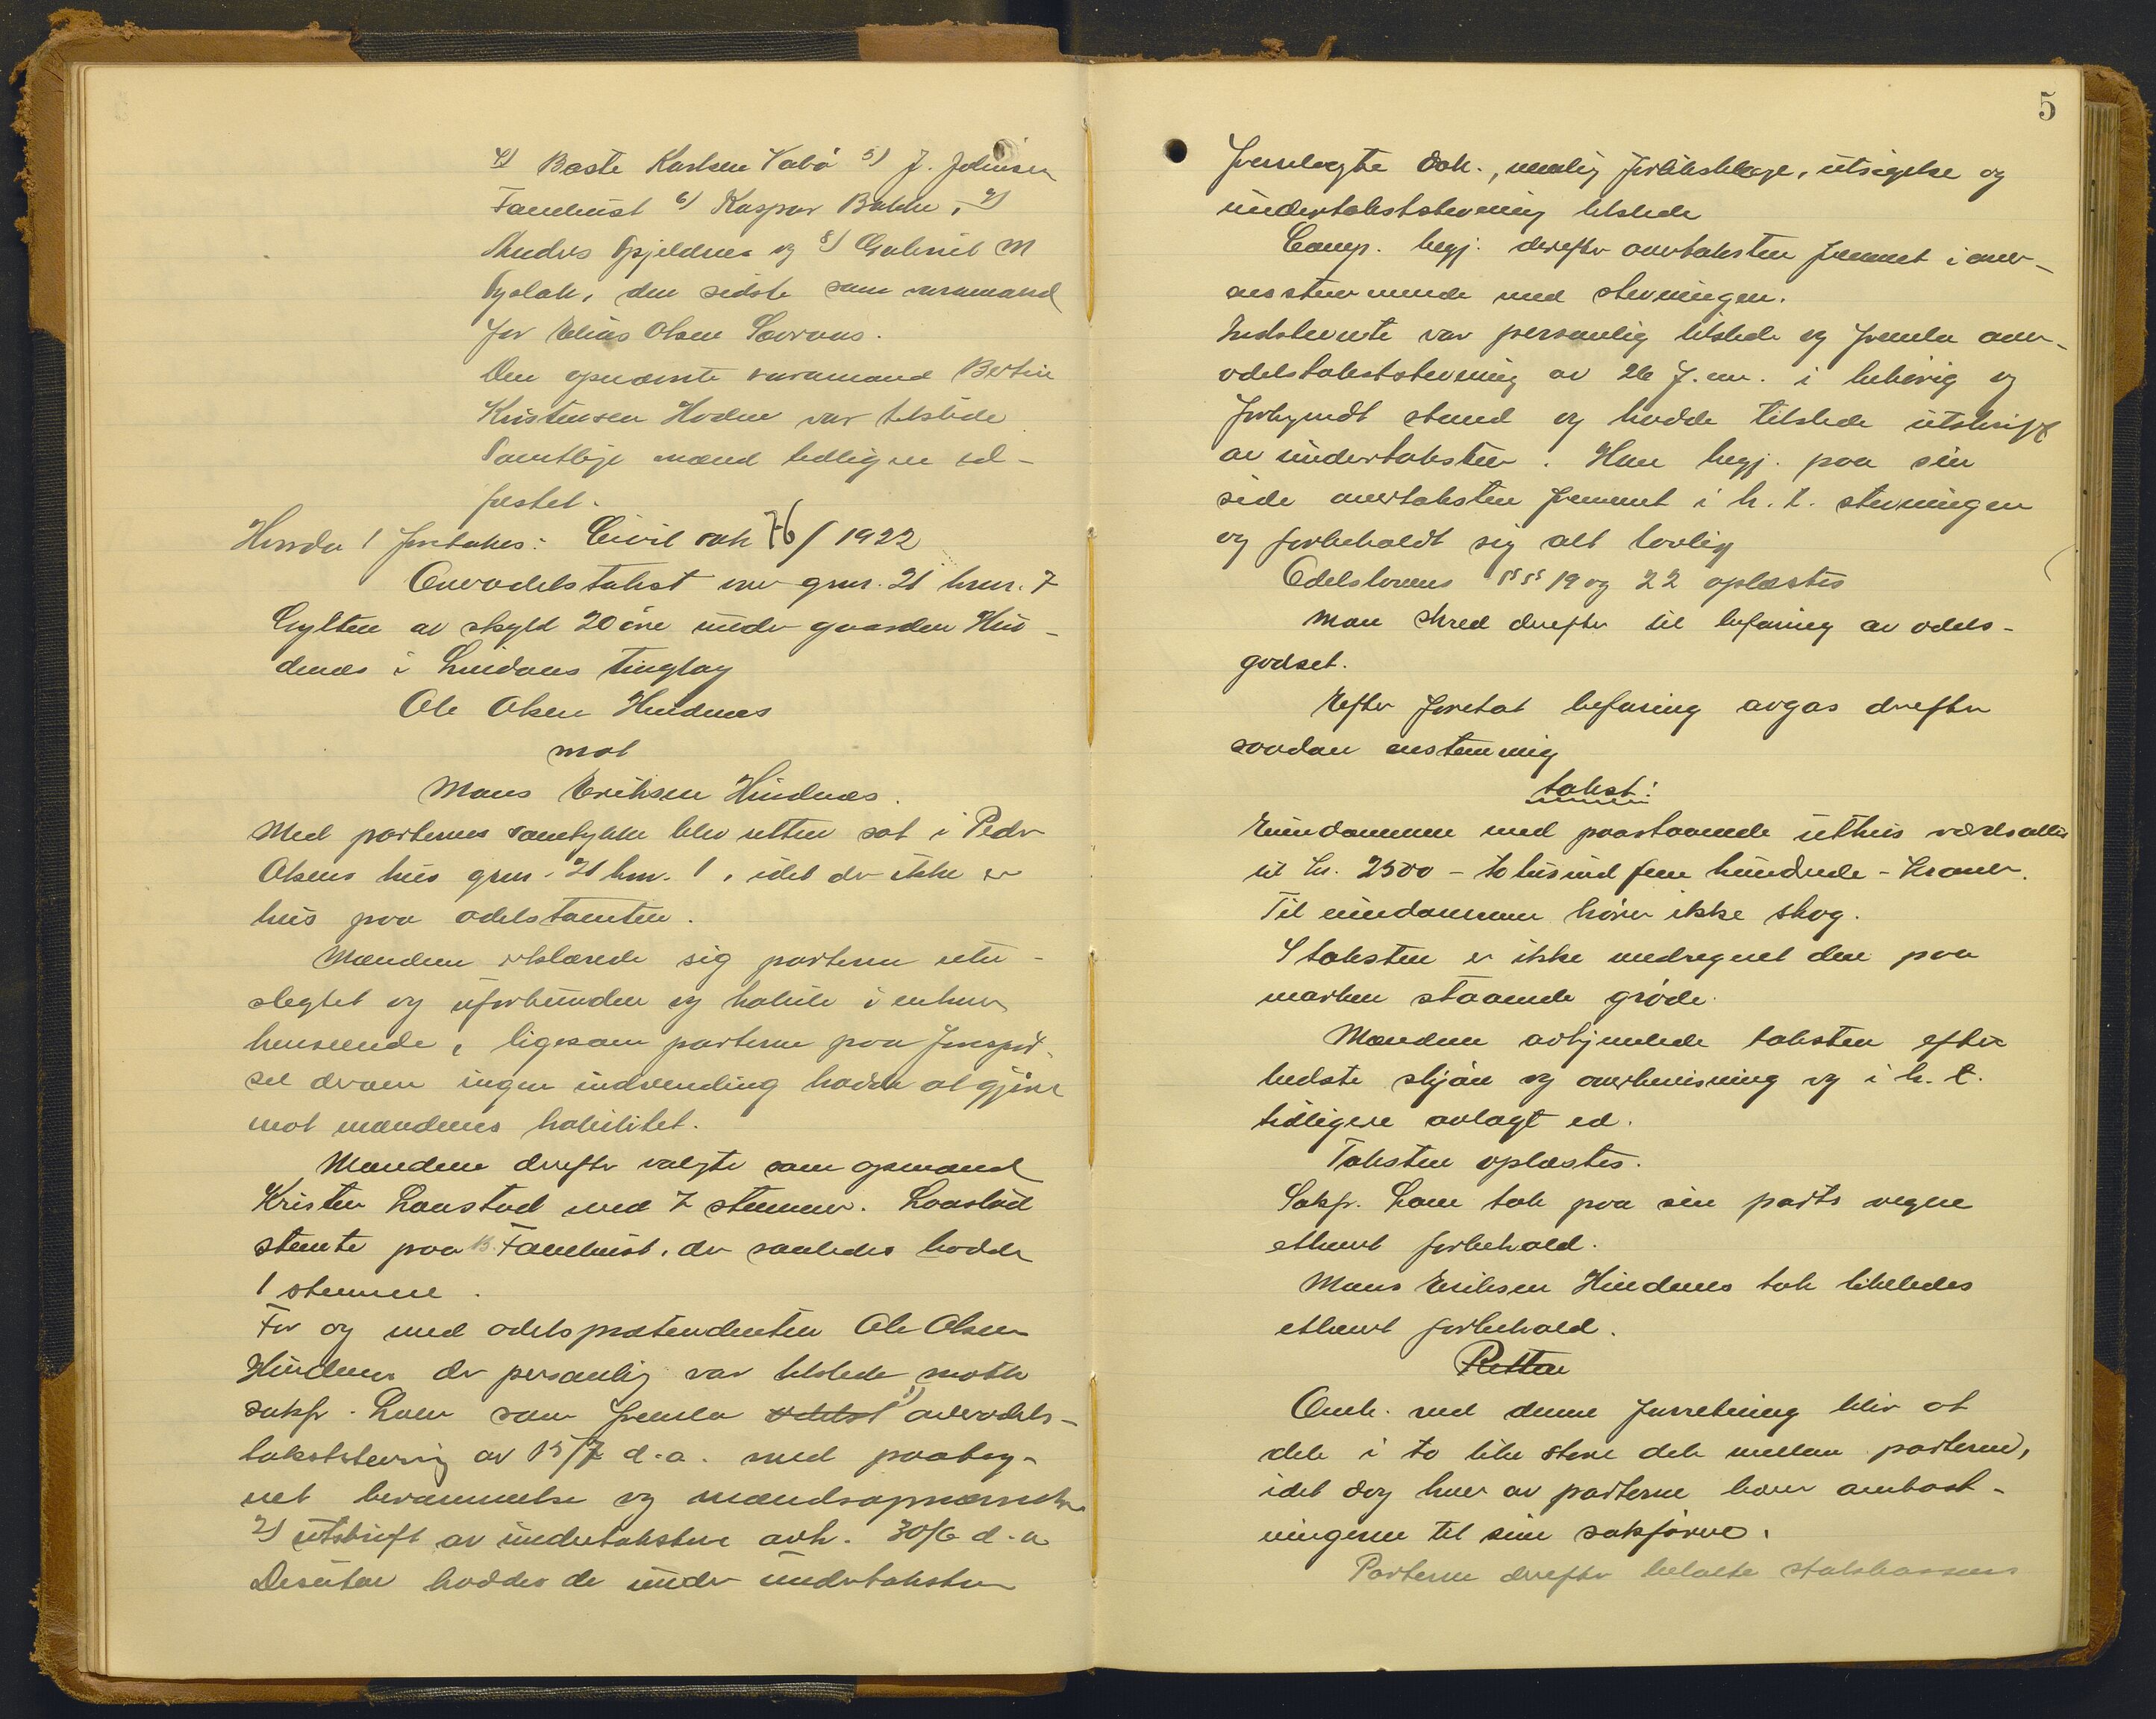 4) Baste Karlsen Vabø 5) J. Johnsen
Fanehust 6) Kaspar Bakke, 7)
Andres Gjeldnes og 8) Gabriel M
, den sidste som varamand
for Elias Olsen
Den opnævnte varamand Bertin
Kristensen Hodne var tilstede
Samtlige mænd tidligere ed-
fæstet.
Herder! foretakes: Civil sak 76/1922
Overodelstakst over gnr. 21 brnr. 7
Gylten av skyld 20 øre under gaarden Hin-
denes i Lindaas tinglag
Ole Olsen Hindenes
mot
Mons Eriksen Hindenes.
Med parternes samtykke blev retten sat i Peder
Olsens hus gnr. 21 bnr. 1, idet der ikke er
hus paa odelstomten.
Mændene erklærede sig parterne ube-
slegtet og uforbunden og habile i enhver
henseende, ligesom parterne paa forespør-
sel derom ingen indvending hadde at gjøre
mot mændenes habilitet.
Mændene derefter valgte som opmand
Kristen Laastad med 7 stemmer. Laastad
stemte paa B. Fanehust, der saaledes hadde
1 stemme.
For og med odelsprætendenten Ole Olsen
Hindenes der personlig var tilstede møtte
sakfr. Lone som fremla odelst 1) overodels-
takststevning av 15/7 d.a. med paateg-
net berammelse og mandsopnævnelse
2) utskrift av undertaksten avh. 30/6 d.a
Desuten haddes de under undertaksten
5
fremlagte dok., nemlig forliksklage, utsigelse og
undertakststevning tilstede
Comp. begj. derefter overtaksten fremmet i over-
ensstemmende med stevningen.
Indstevnte var personlig tilstede og fremla over-
odelstakststevning av 26 f.m. i behørig og
forkyndt stand og hadde tilstede utskrift
av undertaksten. Han begj. paa sin
side overtaksten fremmet i h. t. stevningen
og forbeholdt sig alt lovlig
Odelslovens §§ 19 og 22 oplæstes
Man skred derefter til befaring av odels-
godset.
Efter foretat befaring avgas derefter
saadan enstemmig
takst:
Eiendommen med paastaaende uthus værdsættes
til kr. 2500 - totusind fem hundrede - kroner.
Til eiendommen hører ikke skog.
I taksten er ikke medregnet den paa
marken staaende grøde.
Mændene avhjemlede taksten efter
bedste skjøn og overbevisning og i h. t.
tidligere avlagt ed.
Taksten oplæstes.
Sakfr. Lone tok paa sin parts vegne
ethvert forbehold.
Mons Eriksen Hindenes tok likeledes
ethvert forbehold.
Retten
Omk. ved denne forretning blir at
dele i to like store dele mellem parterne,
idet dog hver av parterne bærer omkost-
ningerne til sine sakførere.
Parterne derefter betalte statskassens